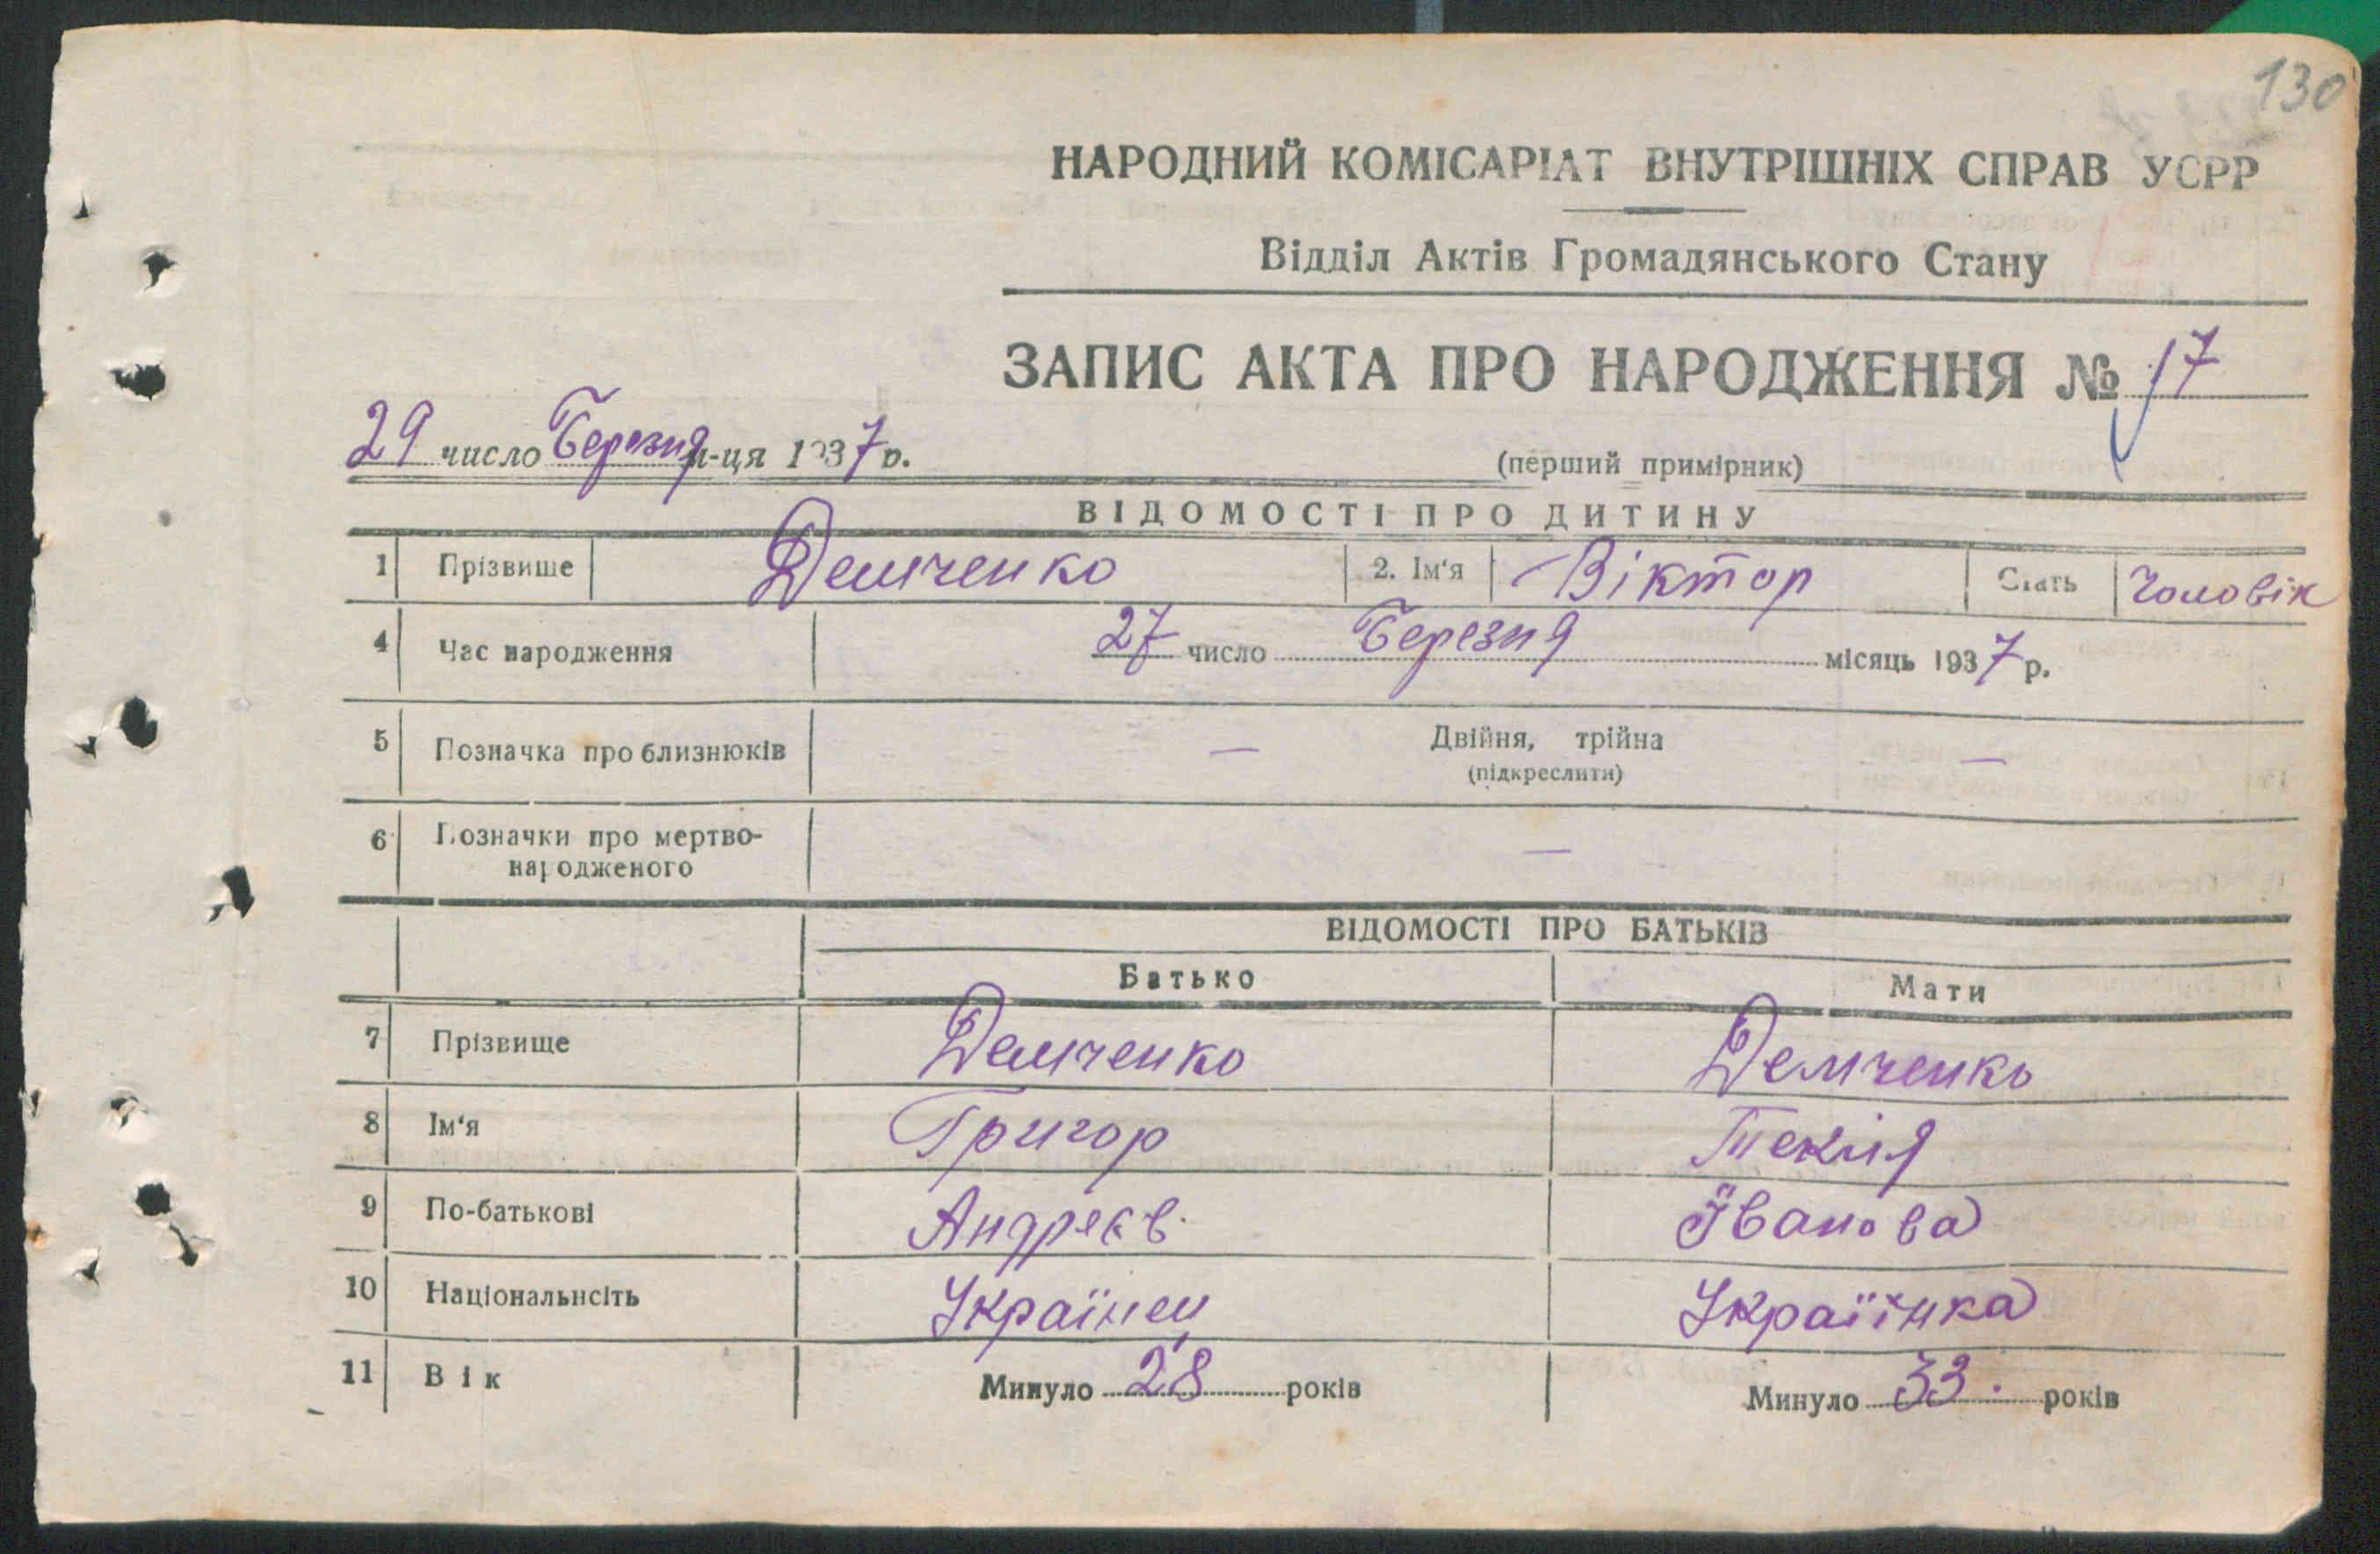 130
НАРОДНИЙ КОМІСАРІАТ ВНУТРІШНІХ СПРАВ УСРР
Відділ Актів Громадянського Стану
ЗАПИС АКТА ПРО НАРОДЖЕННЯ № 17
29 число Березня м-ця 1937 р.
(перший примірник)
ВІДОМОСТІ ПРО ДИТИНУ
1 Прізвище Демченко 2. Ім'я Віктор Стать Чоловік
4 Час народження 27 число Березня місяць 1937 р.
5 Позначка про близнюків — Двійня, трійна —
(підкреслити)
6 Позначки про мертво-
народженого —
ВІДОМОСТІ ПРО БАТЬКІВ
Батько Мати
7 Прізвище Демченко Демченко
8 Ім'я Григор Текля
9 По-батькові Андрєєв. Іванова
10 Національнсіть Українец Україїнка
11 Вік Минуло 28 років Минуло 33. років